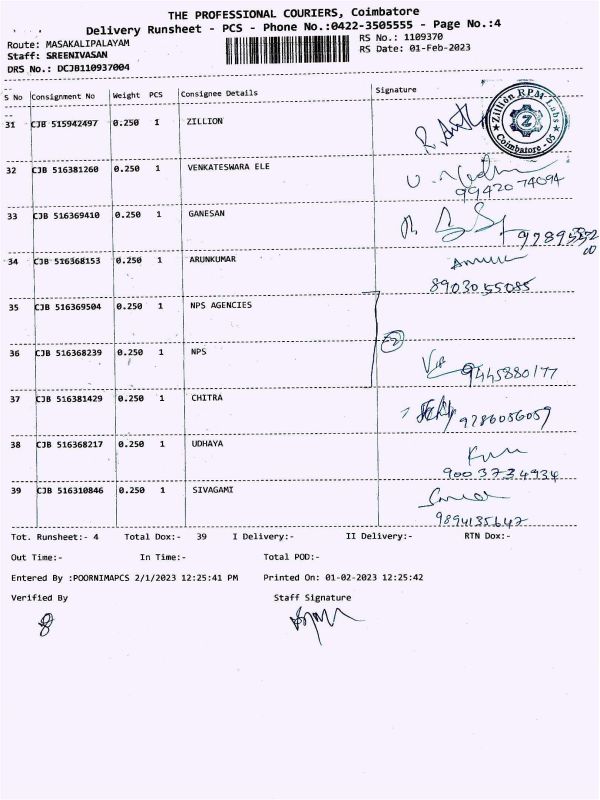 THE PROFESSIONAL COURIERS, Coimbatore
Delivery Runsheet - PCS - Phone No.:0422-3505555 - Page No.:4
Route: MASAKALIPALAYAM
RS No.: 1109370
Staff: SREENIVASAN
RS Date: 01-Feb-2023
DRS No.: DCJB110937004
S No Consignment No Weight PCS Consignee Details Signature
31 CJB 515942497 0.250 1 ZILLION
Zillion RPM Labs Z Coimbatore - 05
32 CJB 516381260 0.250 1 VENKATESWARA ELE
9942074094
33 CJB 516369410 0.250 1 GANESAN
34 CJB 516368153 0.250 1 ARUNKUMAR
8903055085
35 CJB 516369504 0.250 1 NPS AGENCIES
36 CJB 516368239 0.250 1 NPS
9445880177
37 CJB 516381429 0.250 1 CHITRA
9786056059
38 CJB 516368217 0.250 1 UDHAYA
9003734934
39 CJB 516310846 0.250 1 SIVAGAMI
9894135647
Tot. Runsheet:- 4 Total Dox:- 39 I Delivery:- II Delivery:- RTN Dox:-
Out Time:- In Time:- Total POD:-
Entered By :POORNIMAPCS 2/1/2023 12:25:41 PM Printed On: 01-02-2023 12:25:42
Verified By Staff Signature